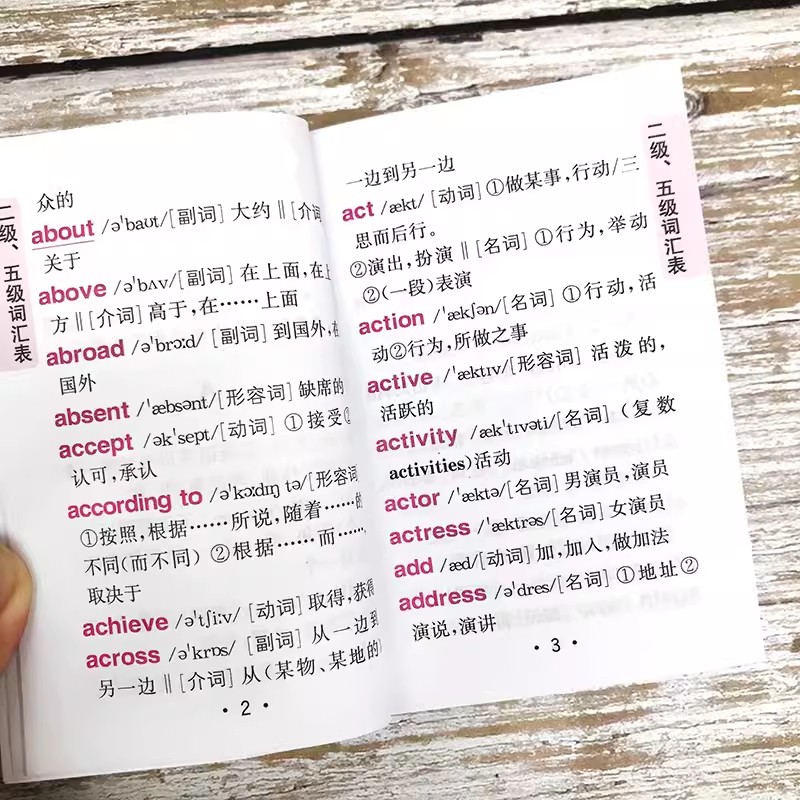 二级、五级词汇表
众的
about /əˈbaʊt/[副词] 大约 ‖ [介词
关于
above /əˈbʌv/[副词] 在上面,在上
方 ‖ [介词] 高于,在……上面
abroad /əˈbrɔːd/ [副词] 到国外,在
国外
absent /ˈæbsənt/[形容词] 缺席的
accept /əkˈsept/[动词] ①接受②
认可,承认
according to /əˈkɔːdɪŋ tə/[形容词
①按照,根据……所说,随着……的
不同(而不同) ②根据……而……
取决于
achieve /əˈtʃiːv/ [动词] 取得,获得
across /əˈkrɒs/ [副词] 从一边到
另一边 ‖ [介词] 从(某物、某地的
• 2 •
一边到另一边
act /ækt/ [动词] ①做某事,行动/三
思而后行。
②演出,扮演 ‖ [名词] ①行为,举动
②(一段)表演
action /ˈækʃən/[名词] ①行动,活
动②行为,所做之事
active /ˈæktɪv/[形容词] 活泼的,
活跃的
activity /ækˈtɪvəti/[名词] (复数
activities)活动
actor /ˈæktə/[名词] 男演员,演员
actress /ˈæktrəs/[名词] 女演员
add /æd/[动词] 加,加入,做加法
address /əˈdres/[名词] ①地址②
演说,演讲
• 3 •
二级、五级词汇表